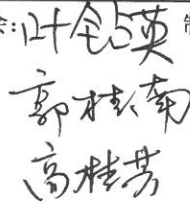 叶钜英
郭桂南
高桂芳